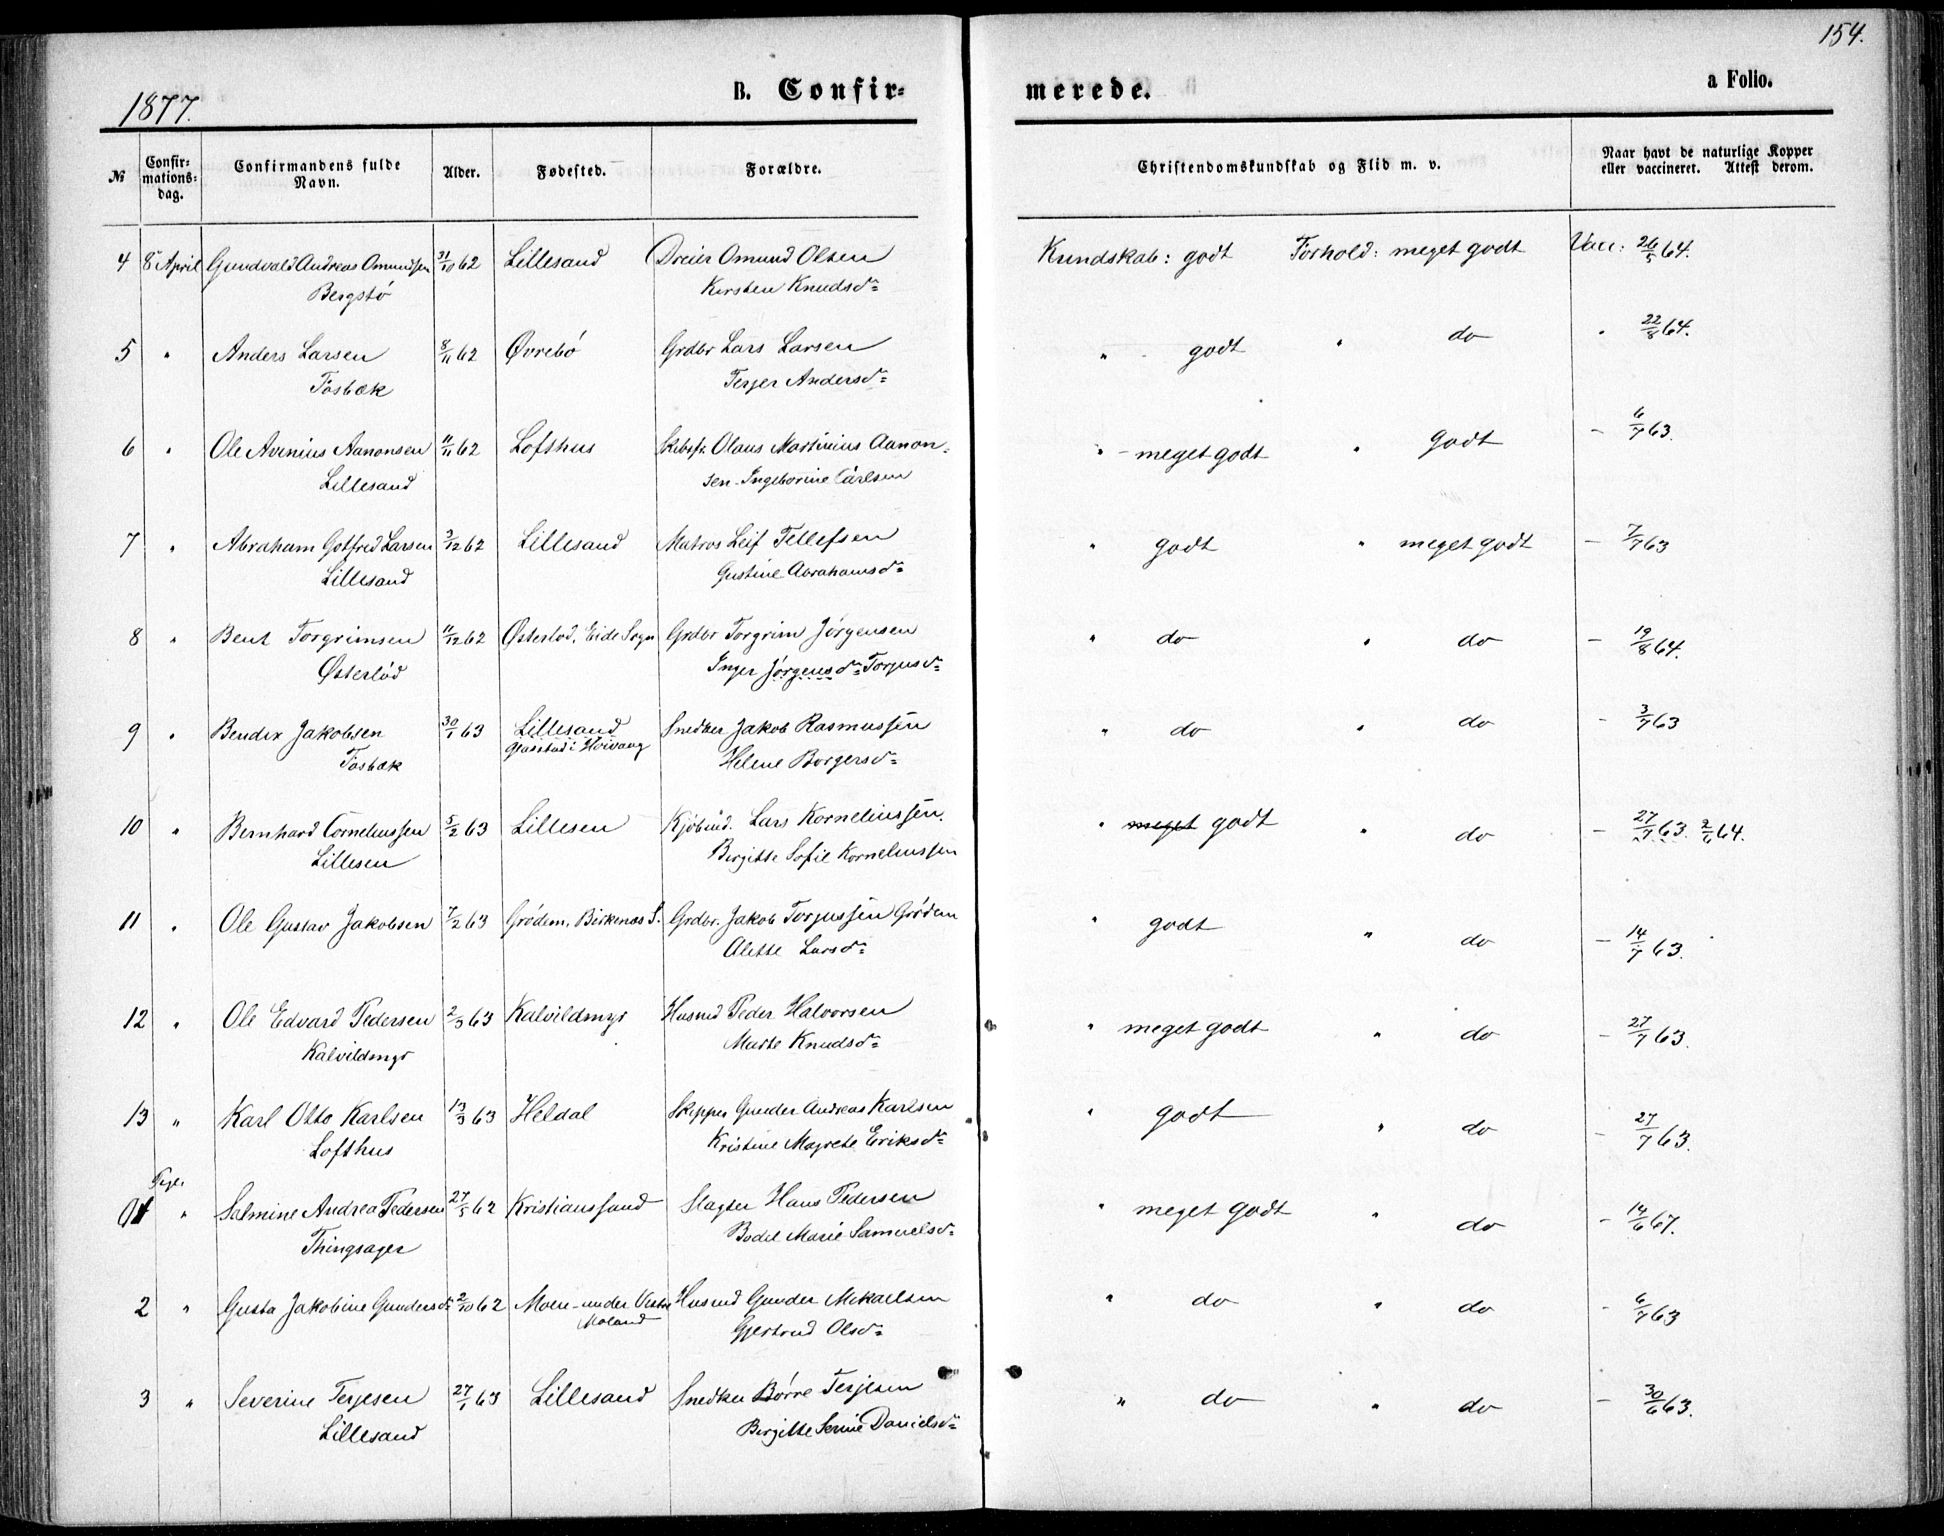 154.
1877.
B. Confir=
merede.
a Folio.
№
Confir=
mations=
dag.
Confirmandens fulde
Navn.
Alder.
Fødested.
Forældre.
Christendomskundskab og Flid m. v.
Naar havt de naturlige Kopper
eller vaccineret. Attest derom.
4 8 April Gundvald Andreas Omundsen 31/10 62 Lillesand Dreier Omund Olsen Kundskab: godt Forhold: meget godt Vacc: 26/5 64.
Bergstø Kirsten Knudsd=
5 " Anders Larsen 8/11 62 Øvrebø Grdbr Lars Larsen " godt " do " 22/8 64.
Tosbæk Terjer Andersd=
6 " Ole Avinius Aanonsen 11/11 62 Lofthus Skibsfr. Olaus Martinius Aanon= " meget godt " Godt — 6/7 63.
Lillesand sen - Ingeborine Carlsen
7 " Abraham Gotfred Larsen 3/12 62 Lillesand Matros Leif Tellefsen " godt " meget godt — 7/7 63
Lillesand Gustine Abrahamsd=
8 " Bent Torgrimsen 11/12 62 Østerlod, Eide Sogn Grdbr Torgrim Jørgensen " do " do — 19/8 64.
Østerlød Inger Jørgensd= Torjusd=
9 " Bendix Jakobsen 30/1 63 Lillesand Snedker Jakob Rasmussen " do " do — 3/7 63
Tosbæk i Høivaag Helene Borgersd=
10 " Bernhard Corneliussen 5/2 63 Lillesen Kjøbmd. Lars Korneliussen. " meget godt " do — 27/7 63. 2/6 64.
Lillesen Birgitte Sofie Korneliussen
11 " Ole Gustav Jakobsen 7/2 63 Grødem, Birkenæs S. Grdbr. Jakob Torjussen Grødem " godt " do — 14/7 63.
Alette Larsd=
12 " Ole Edvard Pedersen 2/3 63 Kalvildmyr Husmd Peder Halvorsen " meget godt " do — 27/7 63.
Kalvildmyr Marte Knudsd=
13 " Karl Otto Karlsen 13/3 63 Heldal Skipper Gunder Andreas Karlsen " godt " do — 27/7 63.
Lofthus Kristine Magrete Eriksd=
1 " Salmine Andrea Pedersen 27/5 62 Kristianssand Slagter Hans Pedersen " meget godt " do — 14/6 67.
Thingsager Bodil Marie Samuelsd=
2 " Gusta Jakobine Gundersd= 2/10 62 Moen under Vestre Husmd Gunder Mikaelsen " do " do — 6/7 63
Moland Gjertrud Olsd=
3 " Severine Terjesen 27/1 63 Lillesand Snedker Børre Terjesen " do " do — 30/6 63.
Lillesand Birgitte Serine Danielsd=